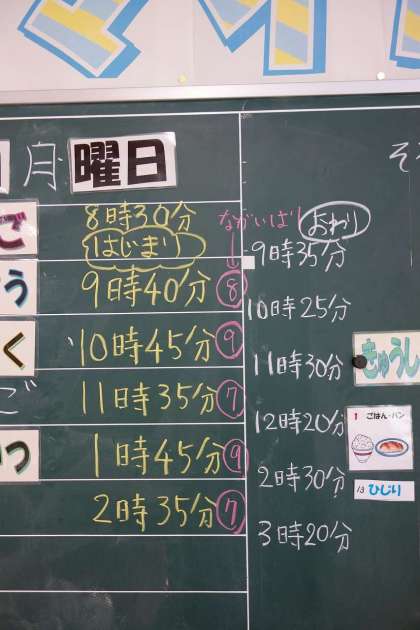 月 曜日
ご 8時30分 ながいはり おわり
はじまり 9時35分
う 9時40分 8
10時25分
く 10時45分 9
11時30分 きゅうし
ご 11時35分 7
12時20分 1 ごはん・パン
つ 1時45分 9
2時30分 ひじり
2時35分 7
3時20分